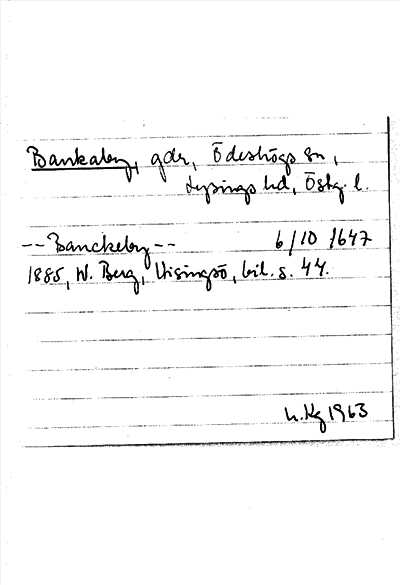 Bankaby, gdr, Ödeshögs sn,
Lysings hd, Östg. l.
-- Banckeby -- 6/10 1647
1885, W. Berg, Visingsö, bil. s. 44.
h. Kg 1963